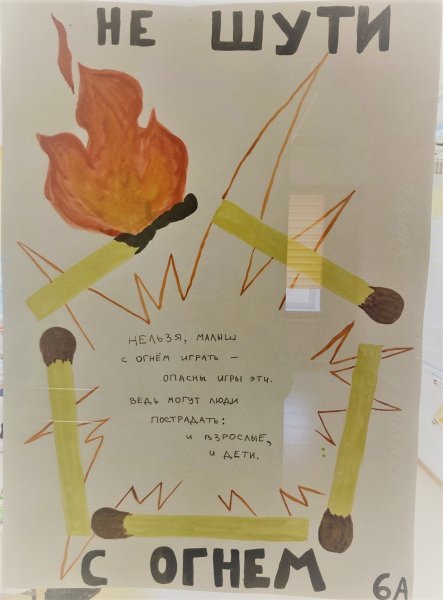 НЕ ШУТИ
НЕЛЬЗЯ, МАЛЫШ
С ОГНЁМ ИГРАТЬ —
ОПАСНЫ ИГРЫ ЭТИ.
ВЕДЬ МОГУТ ЛЮДИ
ПОСТРАДАТЬ:
И ВЗРОСЛЫЕ,
И ДЕТИ.
С ОГНЕМ
6А